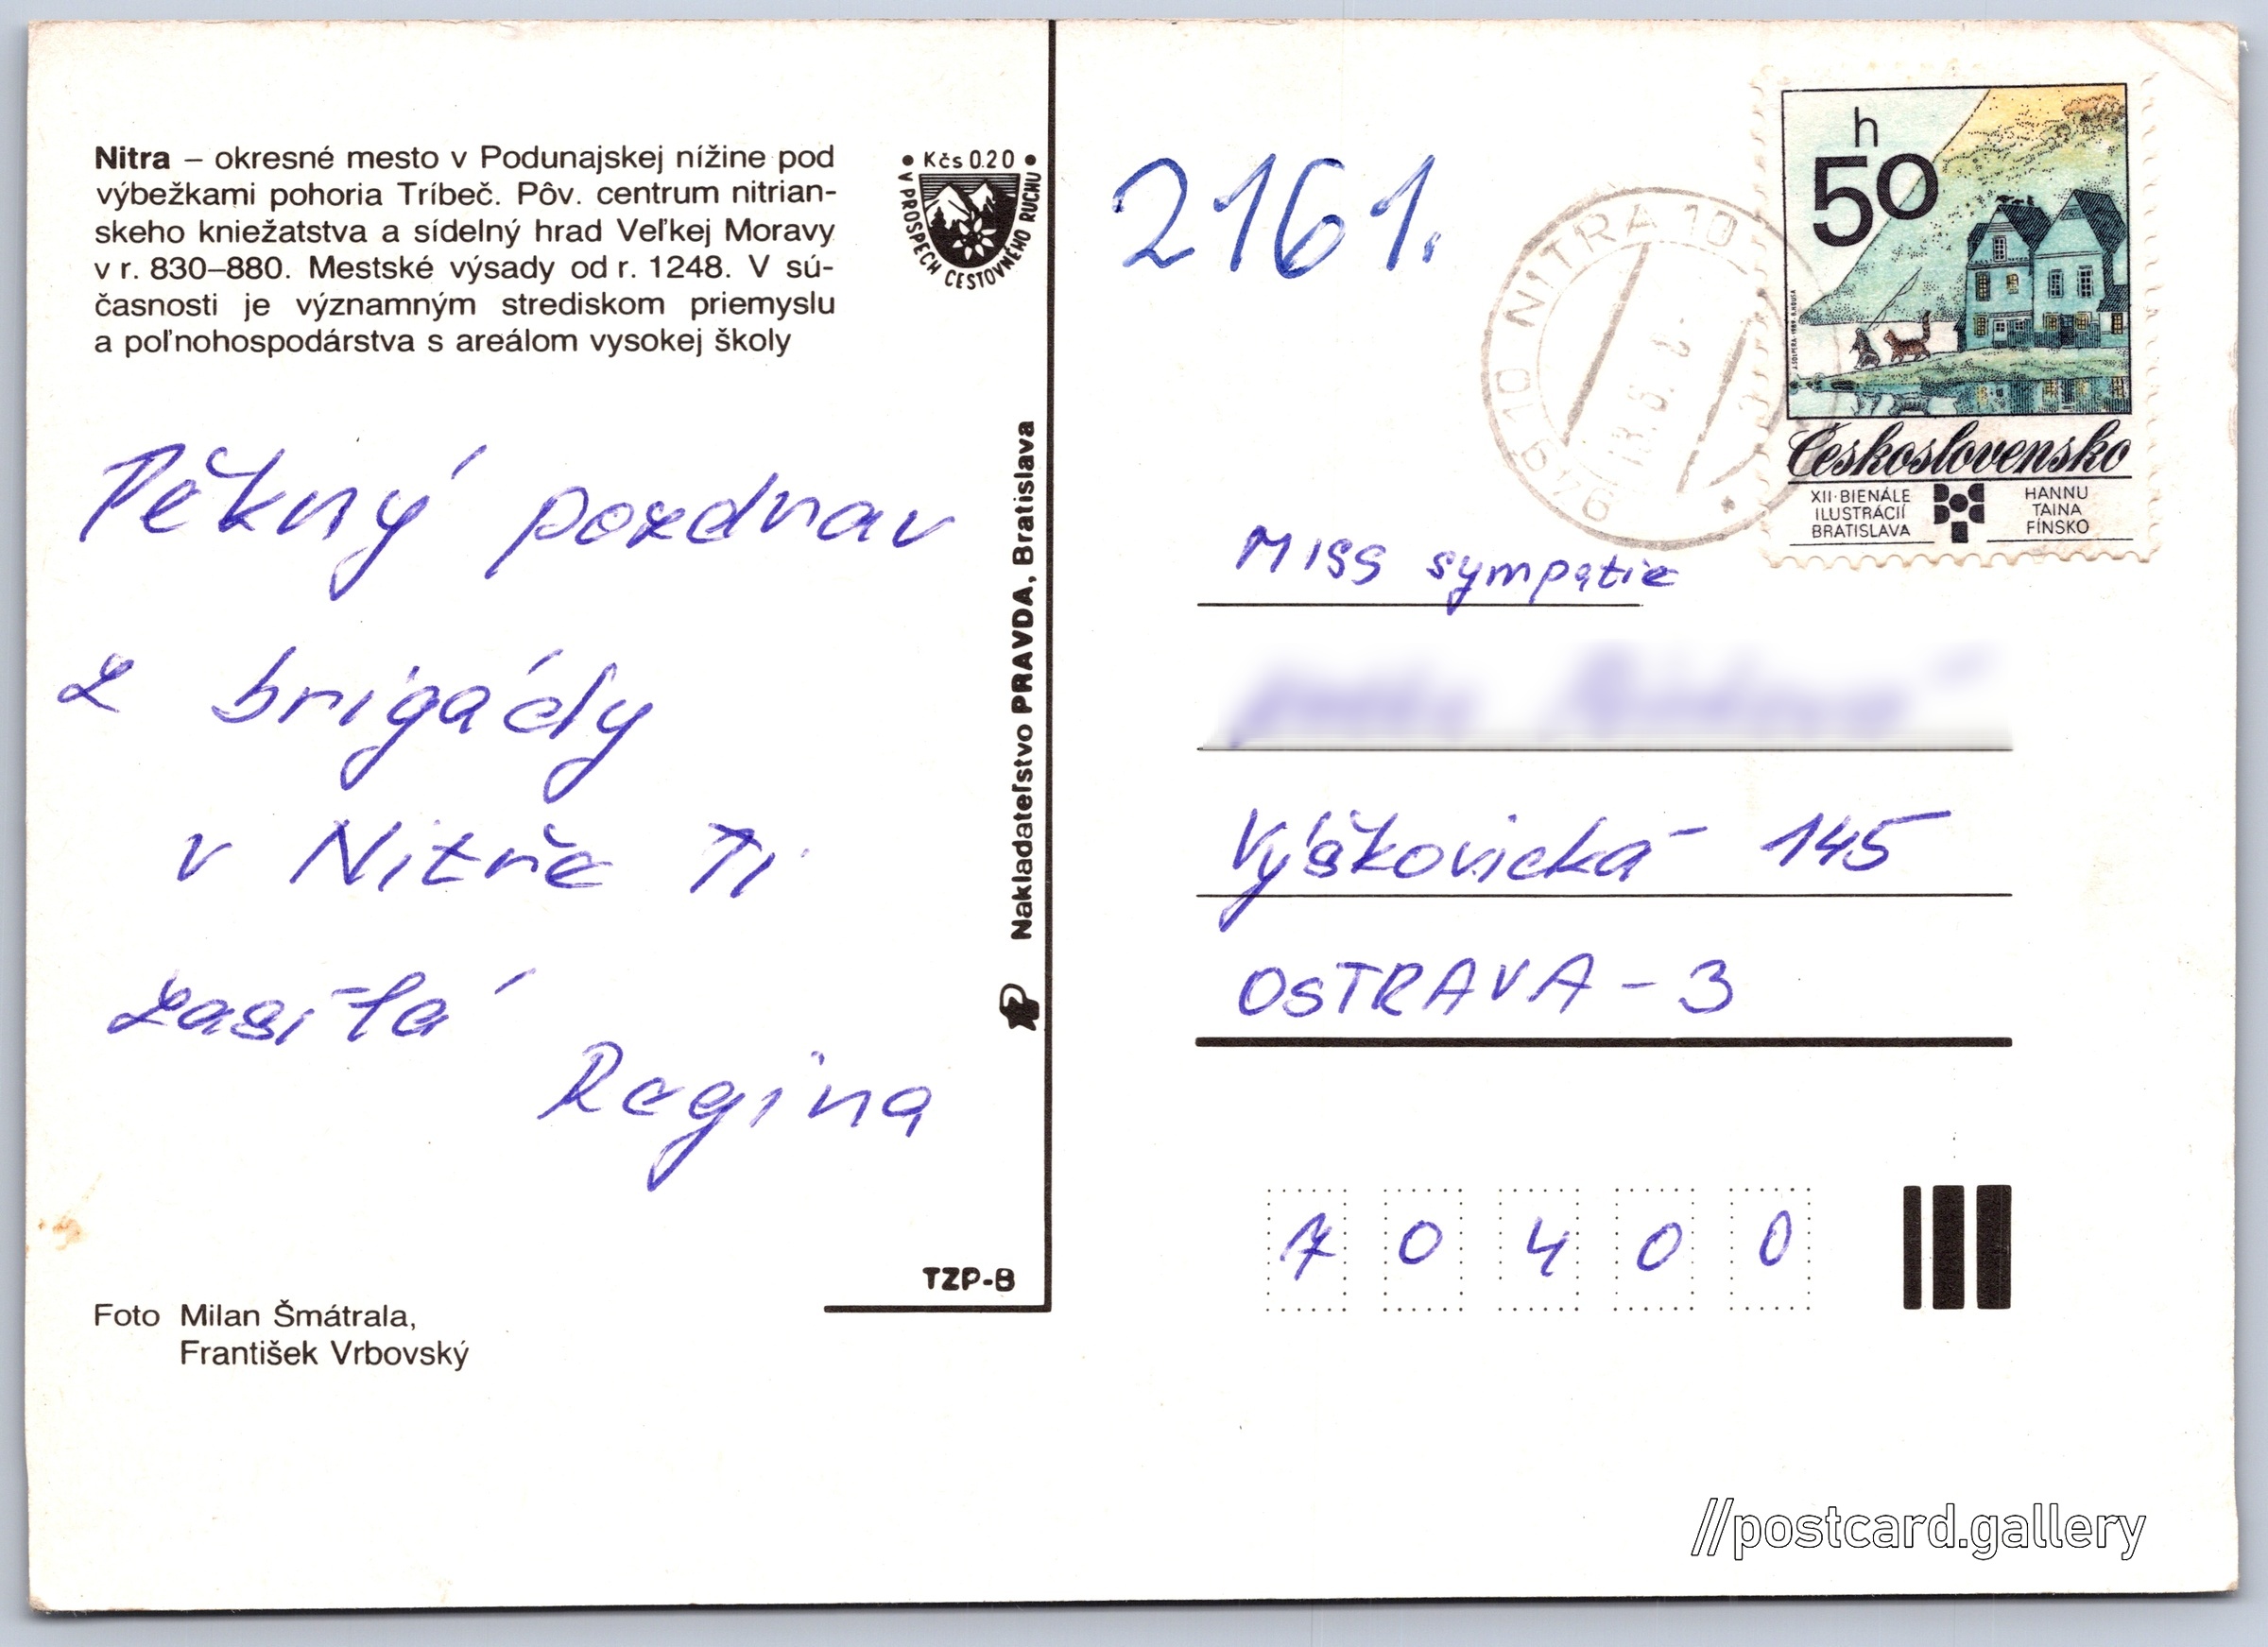 Nitra – okresné mesto v Podunajskej nížine pod
výbežkami pohoria Tríbeč. Pôv. centrum nitrian-
skeho kniežatstva a sídelný hrad Veľkej Moravy
v r. 830–880. Mestské výsady od r. 1248. V sú-
časnosti je významným strediskom priemyslu
a poľnohospodárstva s areálom vysokej školy
• Kčs 0.20 •
V PROSPECH CESTOVNÉHO RUCHU
Pěkný pozdrav
z brigády
v Nitře Ti
zasílá
Regina
Nakladateľstvo PRAVDA, Bratislava
TZP-B
Foto Milan Šmátrala,
František Vrbovský
2161.
949 10 NITRA 10
h
50
Československo
XII·BIENÁLE
ILUSTRÁCIÍ
BRATISLAVA
HANNU
TAINA
FÍNSKO
MISS sympatie
Výškovická 145
OSTRAVA - 3
70400
//postcard.gallery